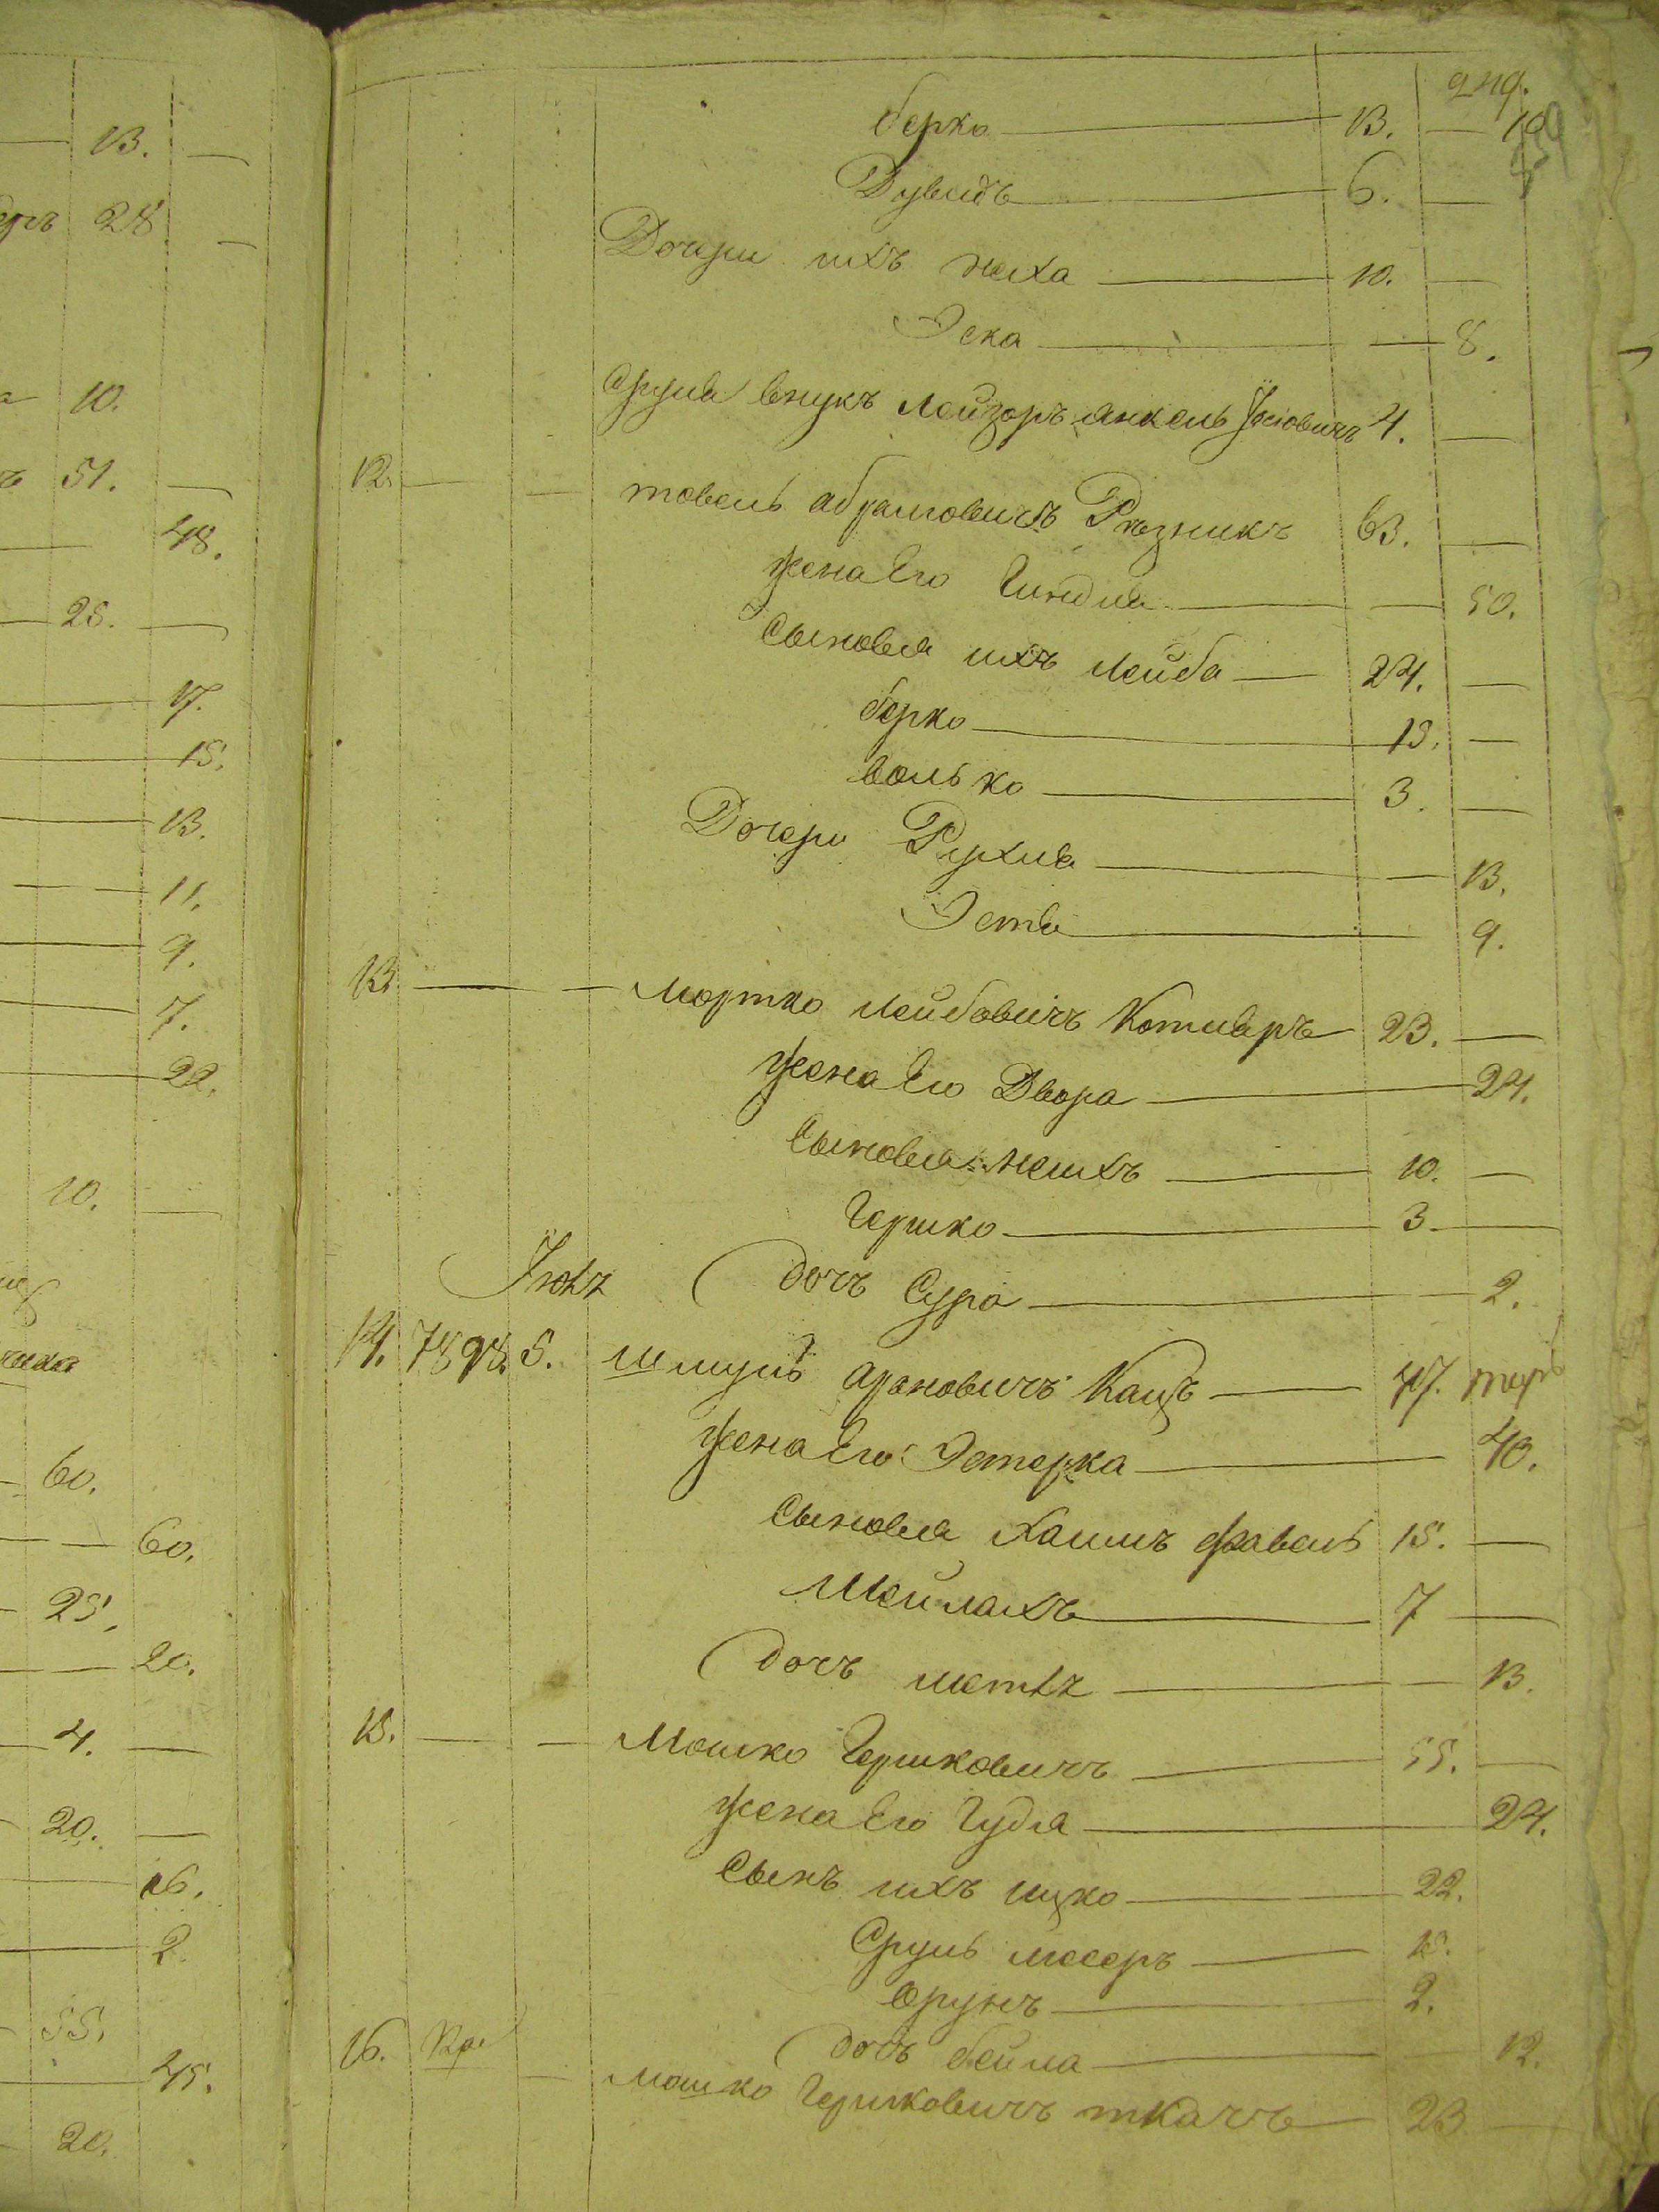 13. —
28 —
10.
51. —
48.
25. —
17.
15.
13.
11.
9.
7.
22.
10.
60.
60.
25.
20.
4. —
20. —
16.
2.
55.
45.
20.
берко — 13. — 10
Дувидъ — 6. —
Дочери ихъ неха — 10. —
Эска — — 8.
Сруля внукъ лейзоръ янкель Іосіовичъ 4. —
12. — — товель абрамовичъ Рѣзникъ 63. —
жена Его Гиндля — — 50.
Сыновья ихъ лейба — 24. —
берко — 15. —
волько — 3. —
Дочери Рухля — — 13.
Эстя — 9.
13. — — мортко лейбовичъ Котляръ — 23. —
жена Его Двора — 24.
Сыновья — 10. —
Гершко — 3. —
дочъ Сура — — 2.
14. 7898. 5. шмуль ароновичъ Кацъ — 47.
жена Его Эстерка — 40.
Сыновья хаимъ фавель 15. —
Мейлахъ — 7 —
дочъ — — 13.
15. — — Мошко Гершковичъ — 55. —
жена Его Гудля — 24.
Сынъ ихъ ицко — 22.
Сруль — 15.
— 2.
дочь бейла — — 12.
16. Кр. — мошко Гершковичъ ткачъ — 23 —